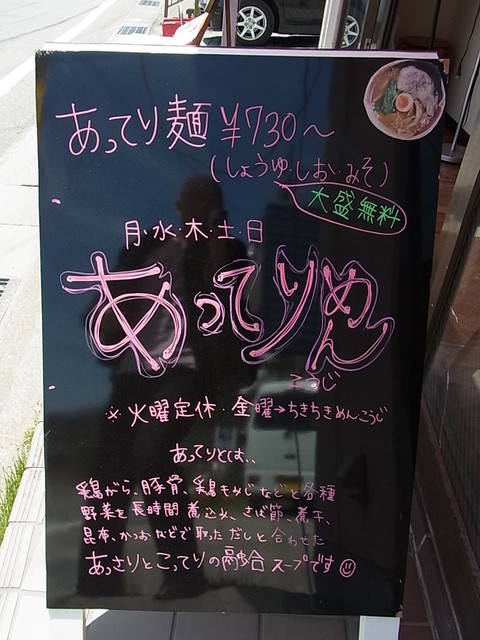 あってり麺 ¥730〜
(しょうゆ・しお・みそ)
大盛無料
月・水・木・土・日
あってりめん
こうじ
※火曜定休・金曜→ちきちきめんこうじ
あってりとは、、
鶏がら、豚骨、鶏もみじなどと各種
野菜を長時間煮込み、さば節、煮干、
昆布、かつおなどで取っただしと合わせた
あっさりとこってりの融合スープです☺